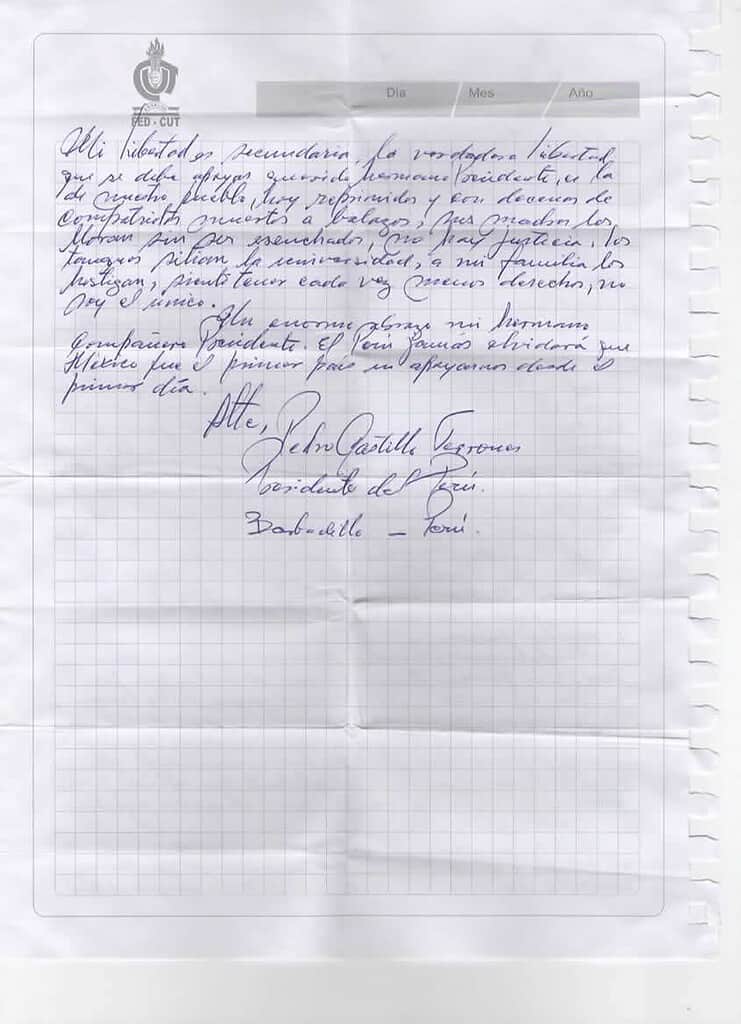 FED - CUT
Día Mes Año
Mi libertad es secundaria, la verdadera libertad
que se debe apoyar querido hermano Presidente, es la
de nuestro pueblo, hoy reprimidos y con decenas de
compatriotas muertos a balazos, sus madres los
lloran sin ser escuchados, no hay justicia, los
tanques sitian la universidad, a mi familia los
hostigan, siento tener cada vez menos derechos, no
soy el único.
Un enorme abrazo mi hermano
Compañero Presidente. El Perú jamás olvidará que
México fue el primer país en apoyarnos desde el
primer día.
Atte,
Pedro Castillo Terrones
Presidente del Perú.
Barbadillo - Perú.